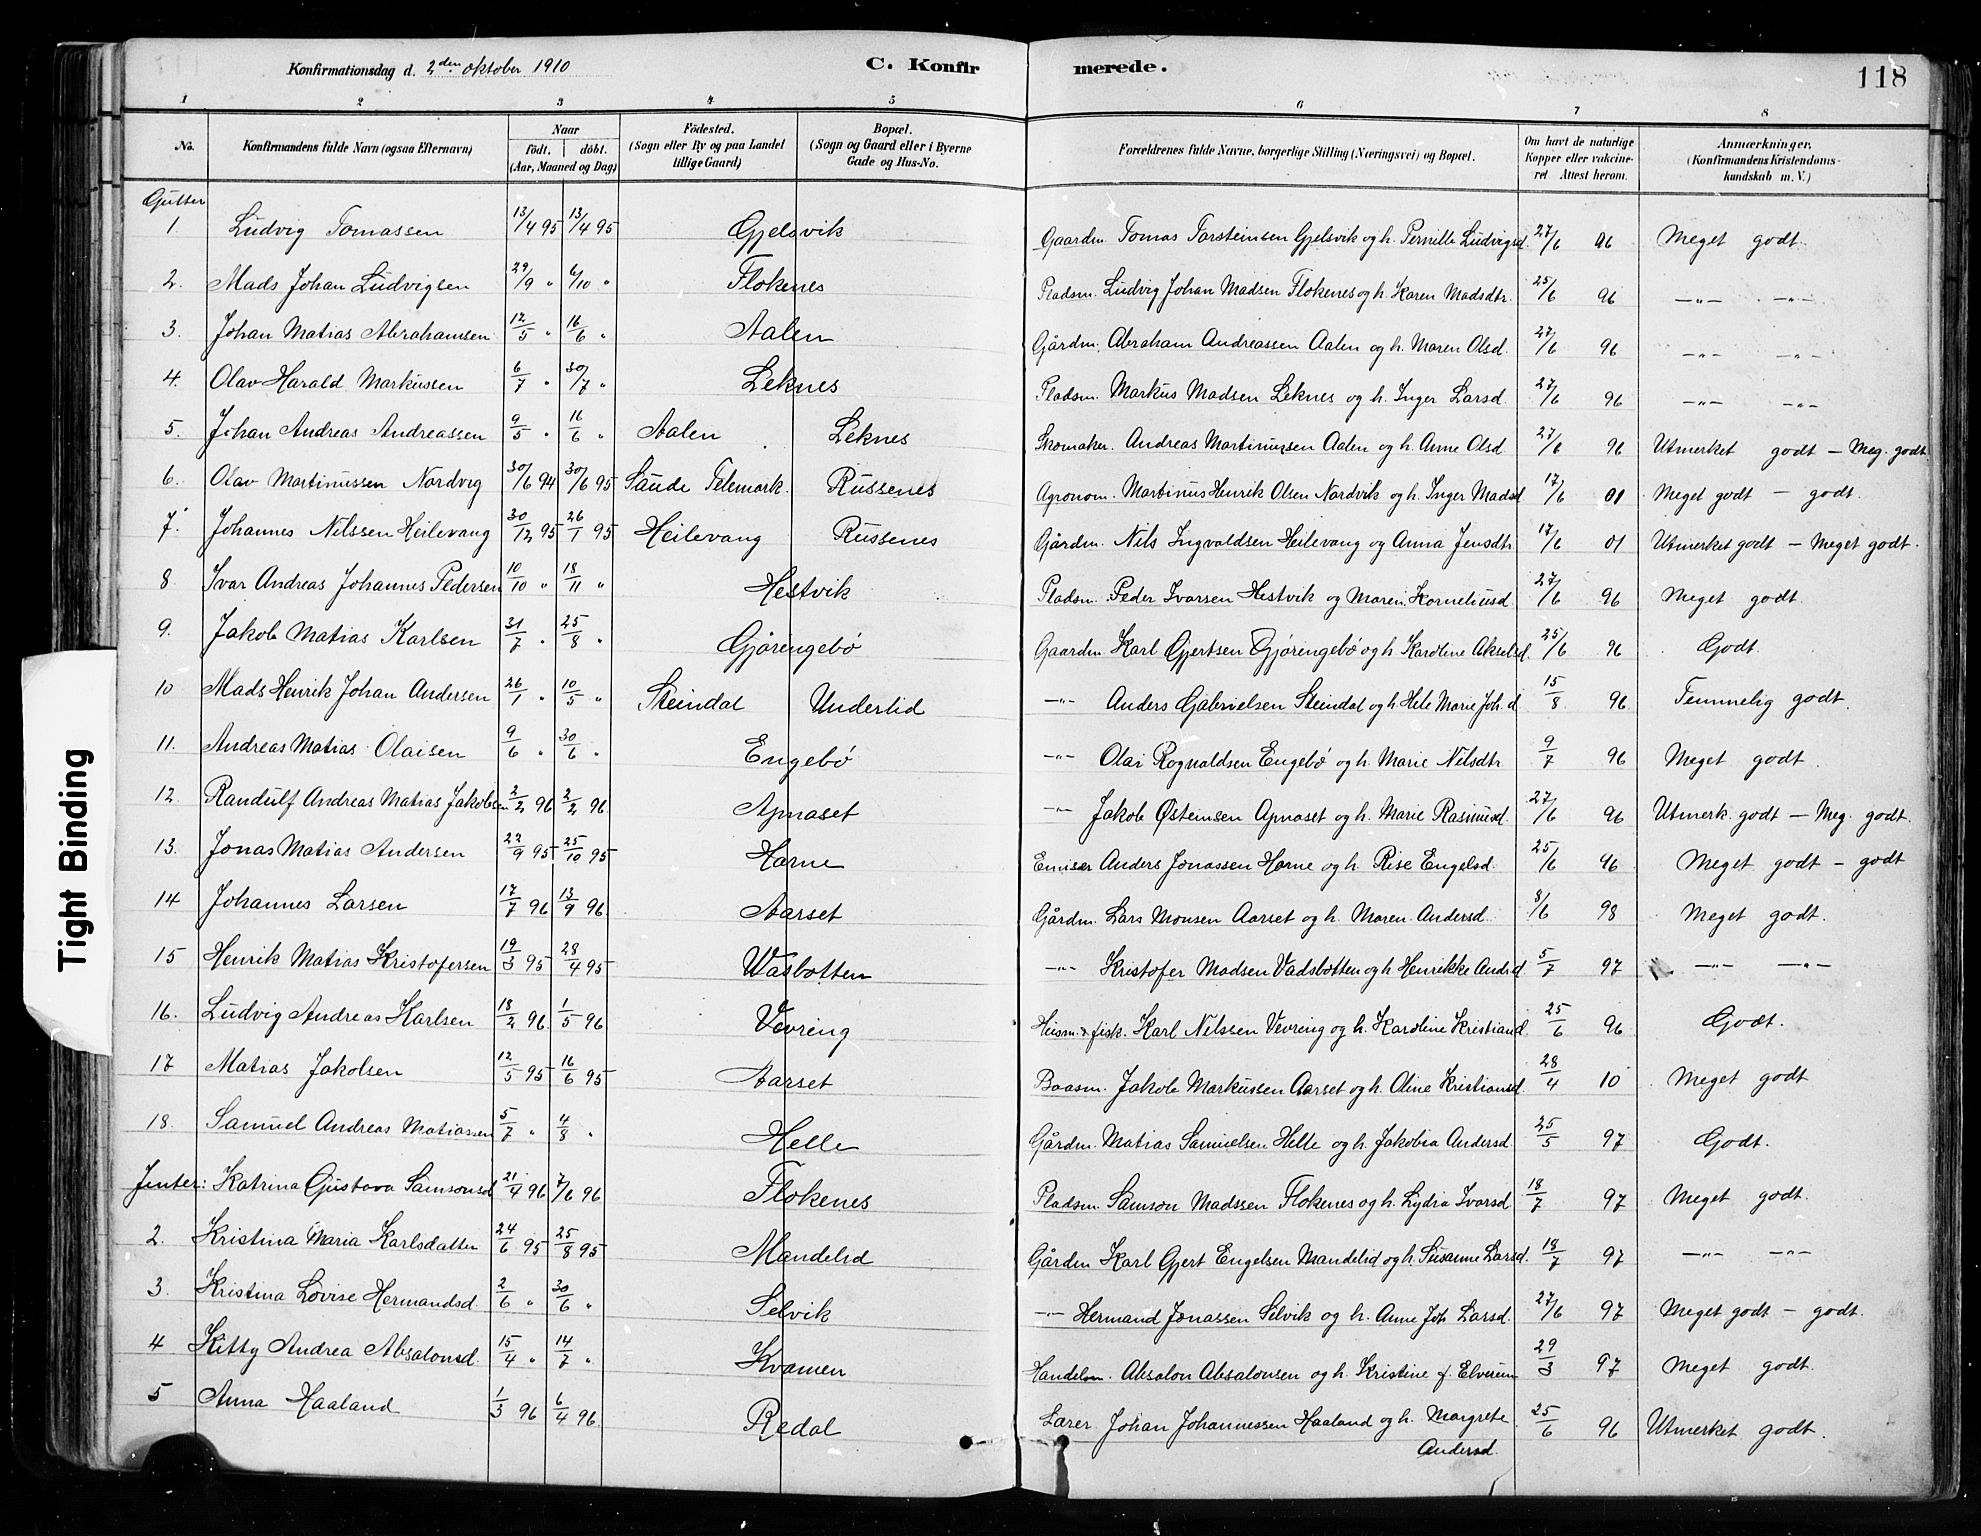 Konfirmationsdag d. 2den oktober 1910 C. Konfirmerede. 118
1 2 3 4 5 6 7 8
No. Konfirmandens fulde Navn (ogsaa Efternavn) Naar födt. döbt. (Aar, Maaned og Dag) Födested. (Sogn eller By og paa Landet tillige Gaard) Bopæl. (Sogn og Gaard eller i Byerne Gade og Hus-No. Forældrenes fulde Navne, borgerlige Stilling (Næringsvei) og Bopæl. Om havt de naturlige Kopper eller vakcineret Attest herom. Anmærkninger, (Konfirmandens Kristendomskundskab m. V.)
Gutter
1 Ludvig Tomassen 13/4 95 13/4 95 Gjelsvik Gaardm. Tomas Torsteinsen Gjelsvik og h. Pernille Ludvigsd. 27/6 96 Meget godt.
2. Mads Johan Ludvigsen 29/9 " 6/10 " Flokenes Pladsm. Ludvig Johan Madsen Flokenes og h. Karen Madsdtr. 25/6 96 —"— —"—
3. Johan Matias Abrahamsen 12/5 " 16/6 " Aalen Gårdm. Abraham Andreassen Aalen og h. Maren Olsd. 27/6 96 —"— —"—
4. Olav Harald Markussen 6/7 " 30/7 " Leknes Pladsm. Markus Madsen Leknes og h. Inger Larsd. 27/6 96 —"— —"—
5. Johan Andreas Andreassen 9/5 " 16/6 " Aalen Leknes Skomaker. Andreas Martinussen Aalen og h. Anne Olsd 27/6 96 Utmerket godt — Meg. godt
6. Olav Martinussen Nordvig 30/6 94 30/6 95 Saude Telemark. Russenes Agronom. Martinus Henrik Olsen Nordvik og h. Inger Madsd 17/6 01 Meget godt — godt.
7. Johannes Nilssen Heilevang 30/12 95 26/1 95 Heilevang Russenes Gårdm. Nils Ingvaldsen Heilevang og Anna Jensdtr. 17/6 01 Utmerket godt — Meget godt.
8. Ivar Andreas Johannes Pedersen 10/10 " 18/11 " Hestvik Pladsm. Peder Ivarsen Hestvik og Maren Korneliusd 27/6 96 Meget godt.
9. Jakob Matias Karlsen 31/7 " 25/8 " Gjörengebö Gaardm Karl Gjertsen Gjörengebö og h. Karoline Akselsd. 25/6 96 Godt.
10 Mads Henrik Johan Andersen 26/1 " 10/5 " Steindal Underlid —"— Anders Gabrielsen Steindal og h. Hele Marie Joh.d 15/8 96 Temmelig godt.
11. Andreas Matias Olaisen 9/6 " 30/6 " Engebö —"— Olai Rognaldsen Engebö og h. Marie Nilsdtr 9/7 96 Meget godt.
12. Randulf Andreas Matias Jakobsen 2/2 96 2/2 96. Apnaset —"— Jakob Østeinsen Apnaset og h. Marie Rasmusd. 27/6 96 Utmerk. godt — Meg. godt.
13. Jonas Matias Andersen 29/9 95 25/10 95 Horne Emisær Anders Jonassen Horne og h. Rise Engelsd. 25/6 96 Meget godt — godt
14 Johannes Larsen 17/7 96 13/9 96. Aarset Gårdm. Lars Monsen Aarset og h. Maren Andersd. 8/6 98 Meget godt.
15 Henrik Matias Kristofersen 19/3 95 28/4 95 Wasbotten —"— Kristofer Madsen Vadsbotten og h Henrikke Andrd 5/7 97 —"— —"—
16. Ludvig Andreas Karlsen 18/2 96 1/5 96 Vevring Husm. & fisk. Karl Nilssen Vevring og h. Karoline Kristiand. 25/6 96 Godt.
17 Matias Jakobsen 12/5 95 16/6 95 Aarset Baasm. Jakob Markussen Aarset og h. Oline Kristiansd. 28/4 10 Meget godt
18. Samuel Andreas Matiassen 5/7 " 4/8 " Helle Gårdm. Matias Samuelsen Helle og h. Jakobia Andersd. 25/5 97 Godt.
Jenter: Katrina Gustava Samsonsd 21/4 96 7/6 96 Flokenes Pladsm. Samson Madssen Flokenes og h. Lydia Ivarsd 18/7 97 Meget godt.
2. Kristina Maria Karlsdatter 24/6 95 25/8 95 Mandelid Gårdm Karl Gjert Engelsen Mandelid og h. Susanne Larsd. 18/7 97 —"— —"—
3. Kristina Lovise Hermandsd. 2/6 " 30/6 " Selvik —"— Hermand Jonassen Selvik og h. Anne Joh Larsd. 27/6 97 Meget godt — godt.
4 Kitty Andrea Absalonsd. 15/4 " 14/7 " Kvamen Handelsm. Absalon Absalonsen og h. Kristine f. Elverum 29/3 97 Meget godt.
5 Anna Haaland 1/3 96 6/4 96. Redal Lærer Johan Johannessen Haaland og h. Margrete Andersd. 25/6 96 Utmerket godt.
Tight Binding